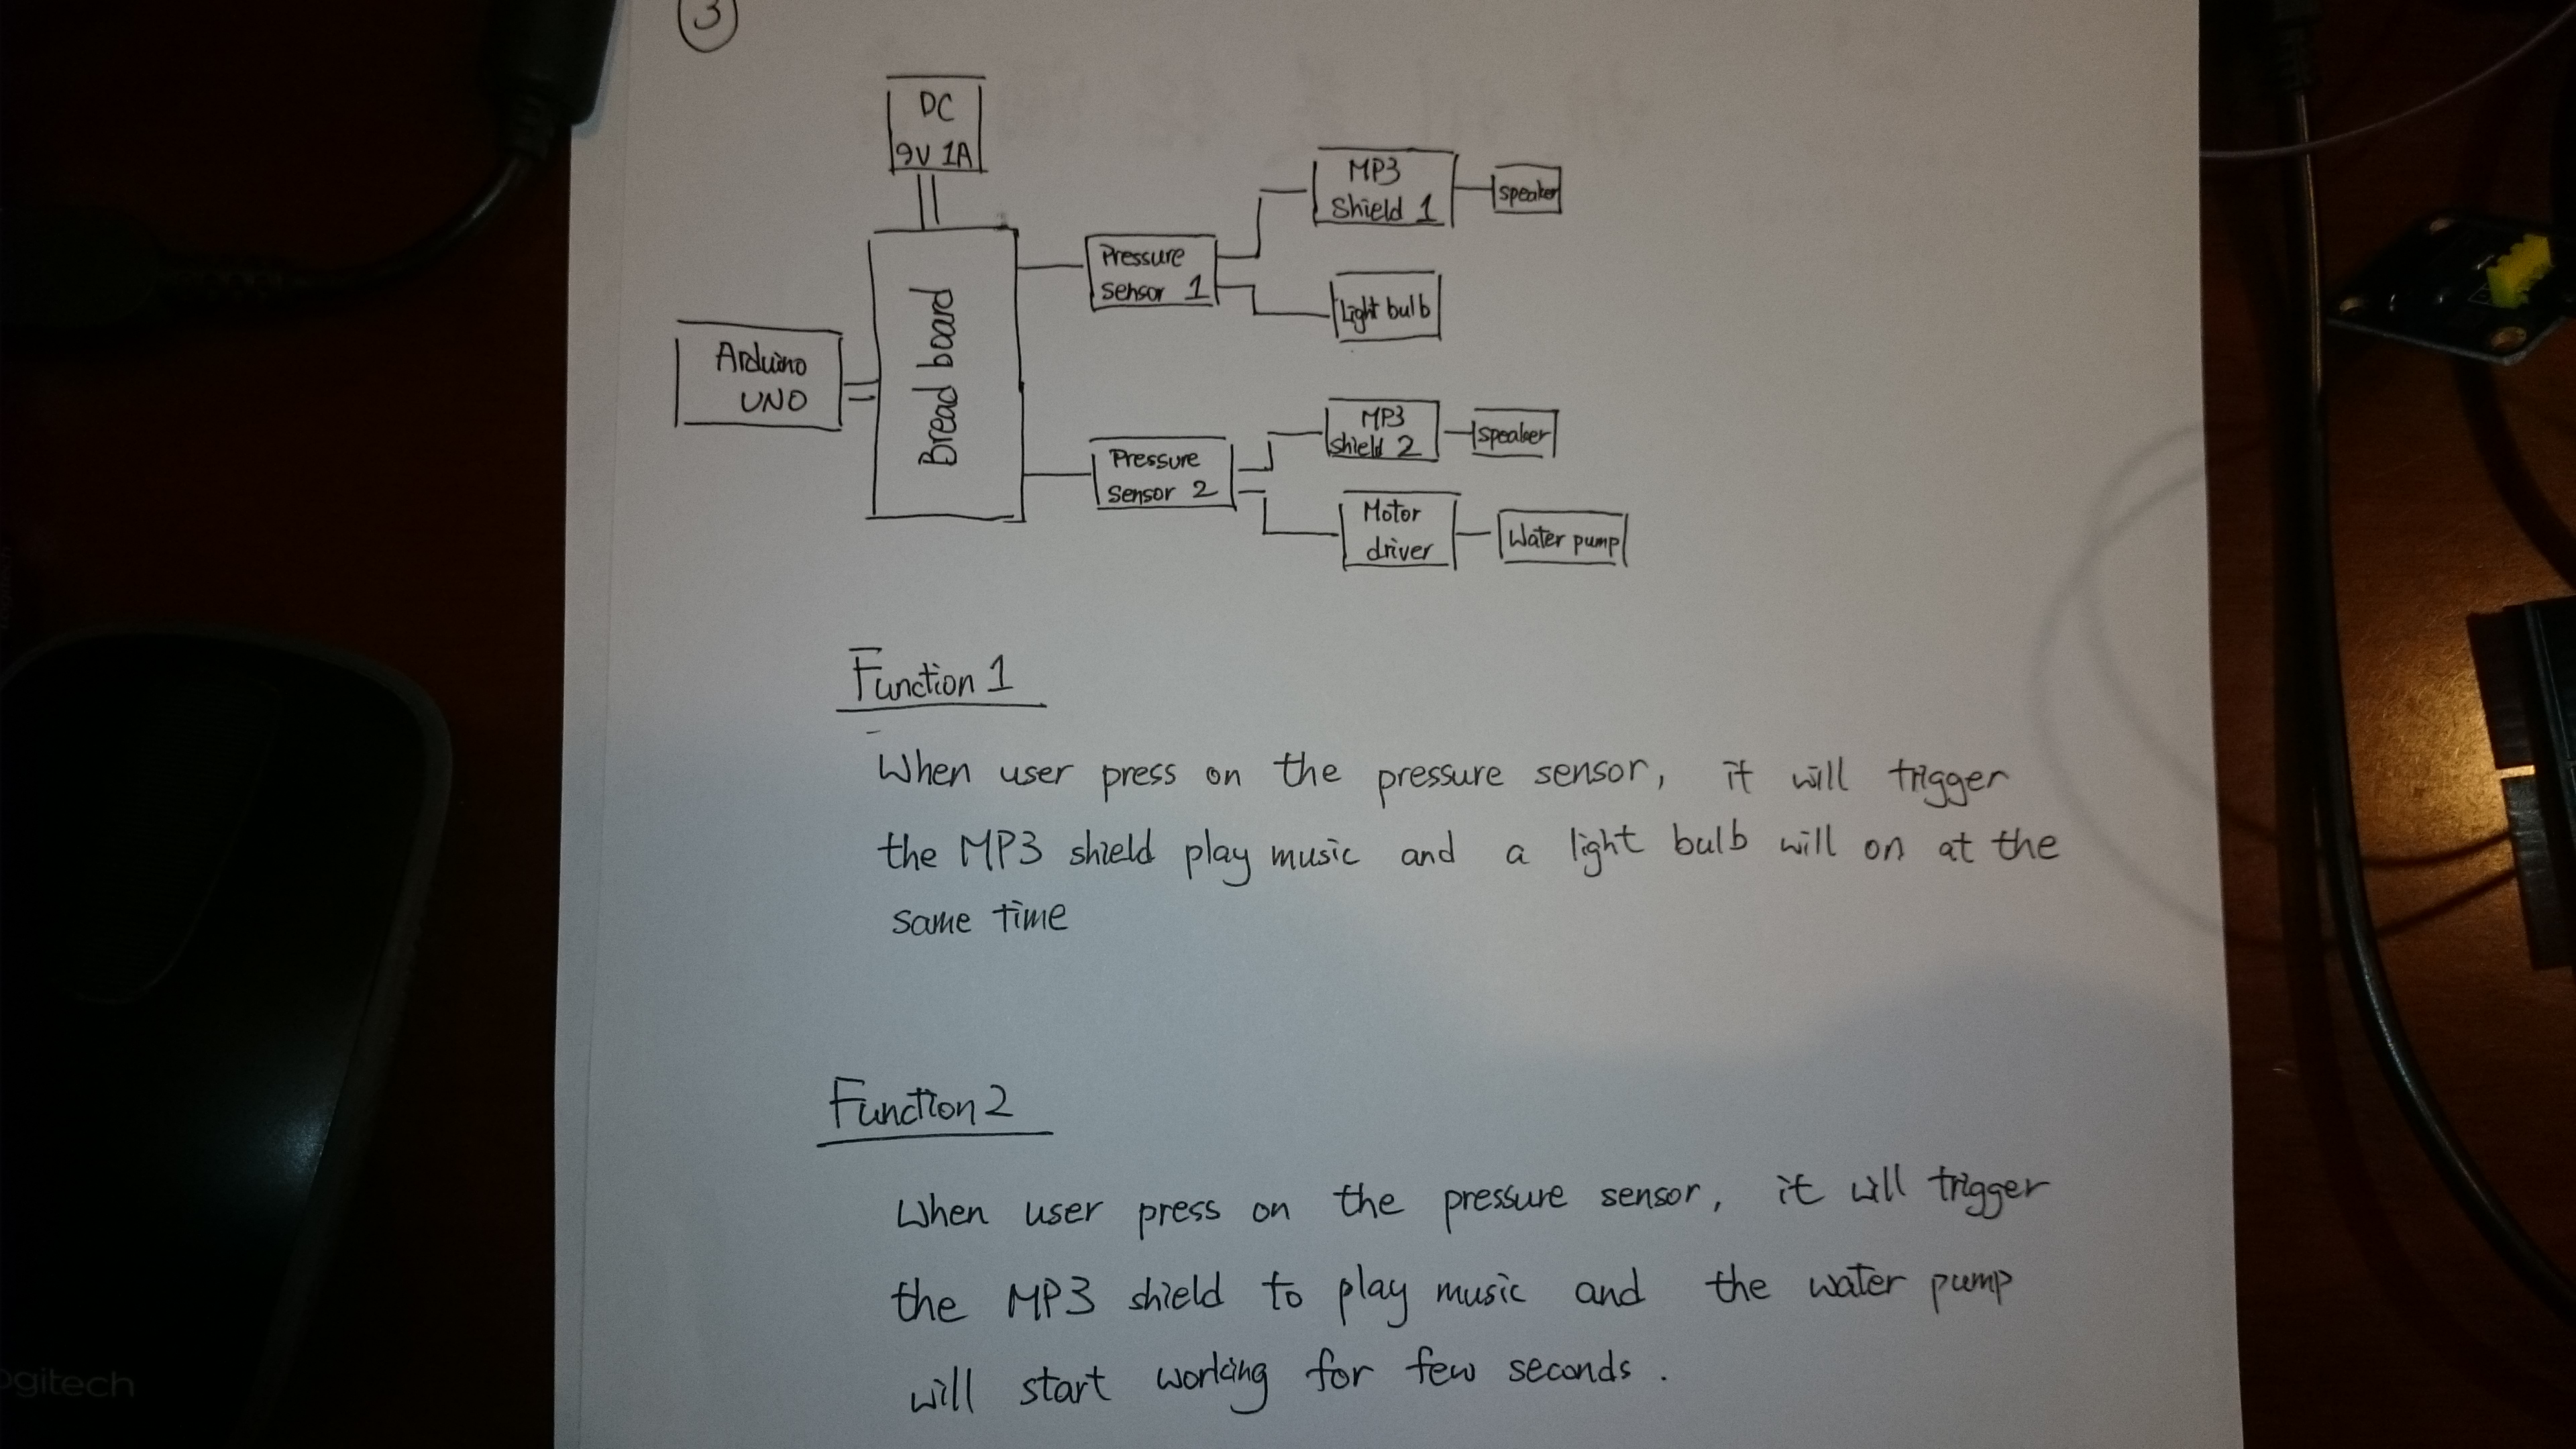 3
DC
9V 1A
MP3
Shield 1
speaker
Pressure
sensor 1
Light bulb
Arduino
UNO
Bread board
MP3
shield 2
speaker
Pressure
sensor 2
Motor
driver
Water pump
Function 1
When user press on the pressure sensor, it will trigger
the MP3 shield play music and a light bulb will on at the
same time
Function 2
When user press on the pressure sensor, it will trigger
the MP3 shield to play music and the water pump
will start working for few seconds.
ogitech